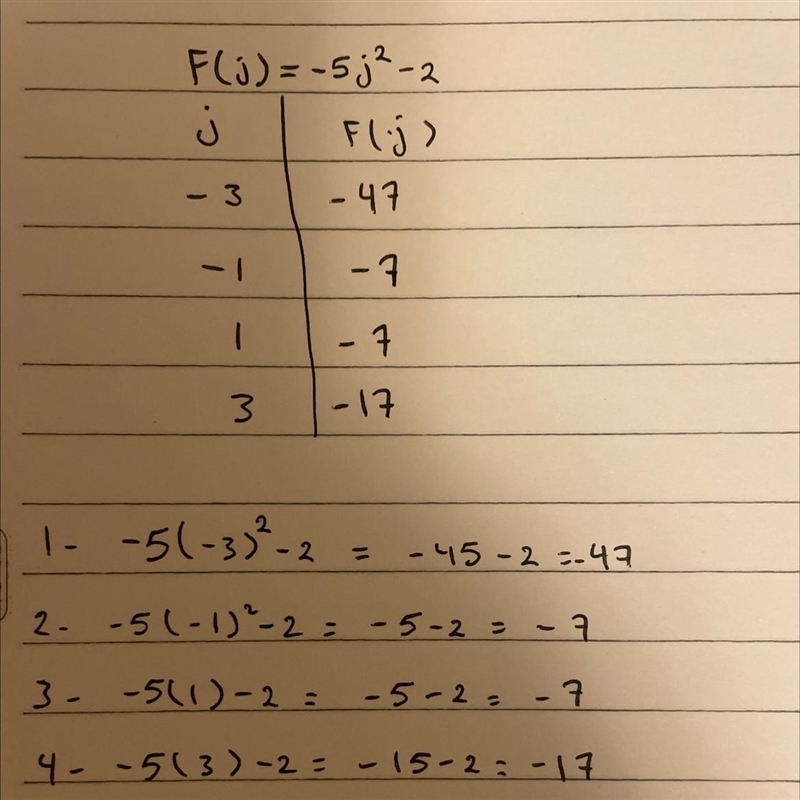 F(j) = -5j² - 2
j | F(j)
-3 | -47
-1 | -7
1 | -7
3 | -17
1 - -5(-3)² - 2 = -45 - 2 = -47
2 - -5(-1)² - 2 = -5 - 2 = -7
3 - -5(1) - 2 = -5 - 2 = -7
4 - -5(3) - 2 = -15 - 2 = -17